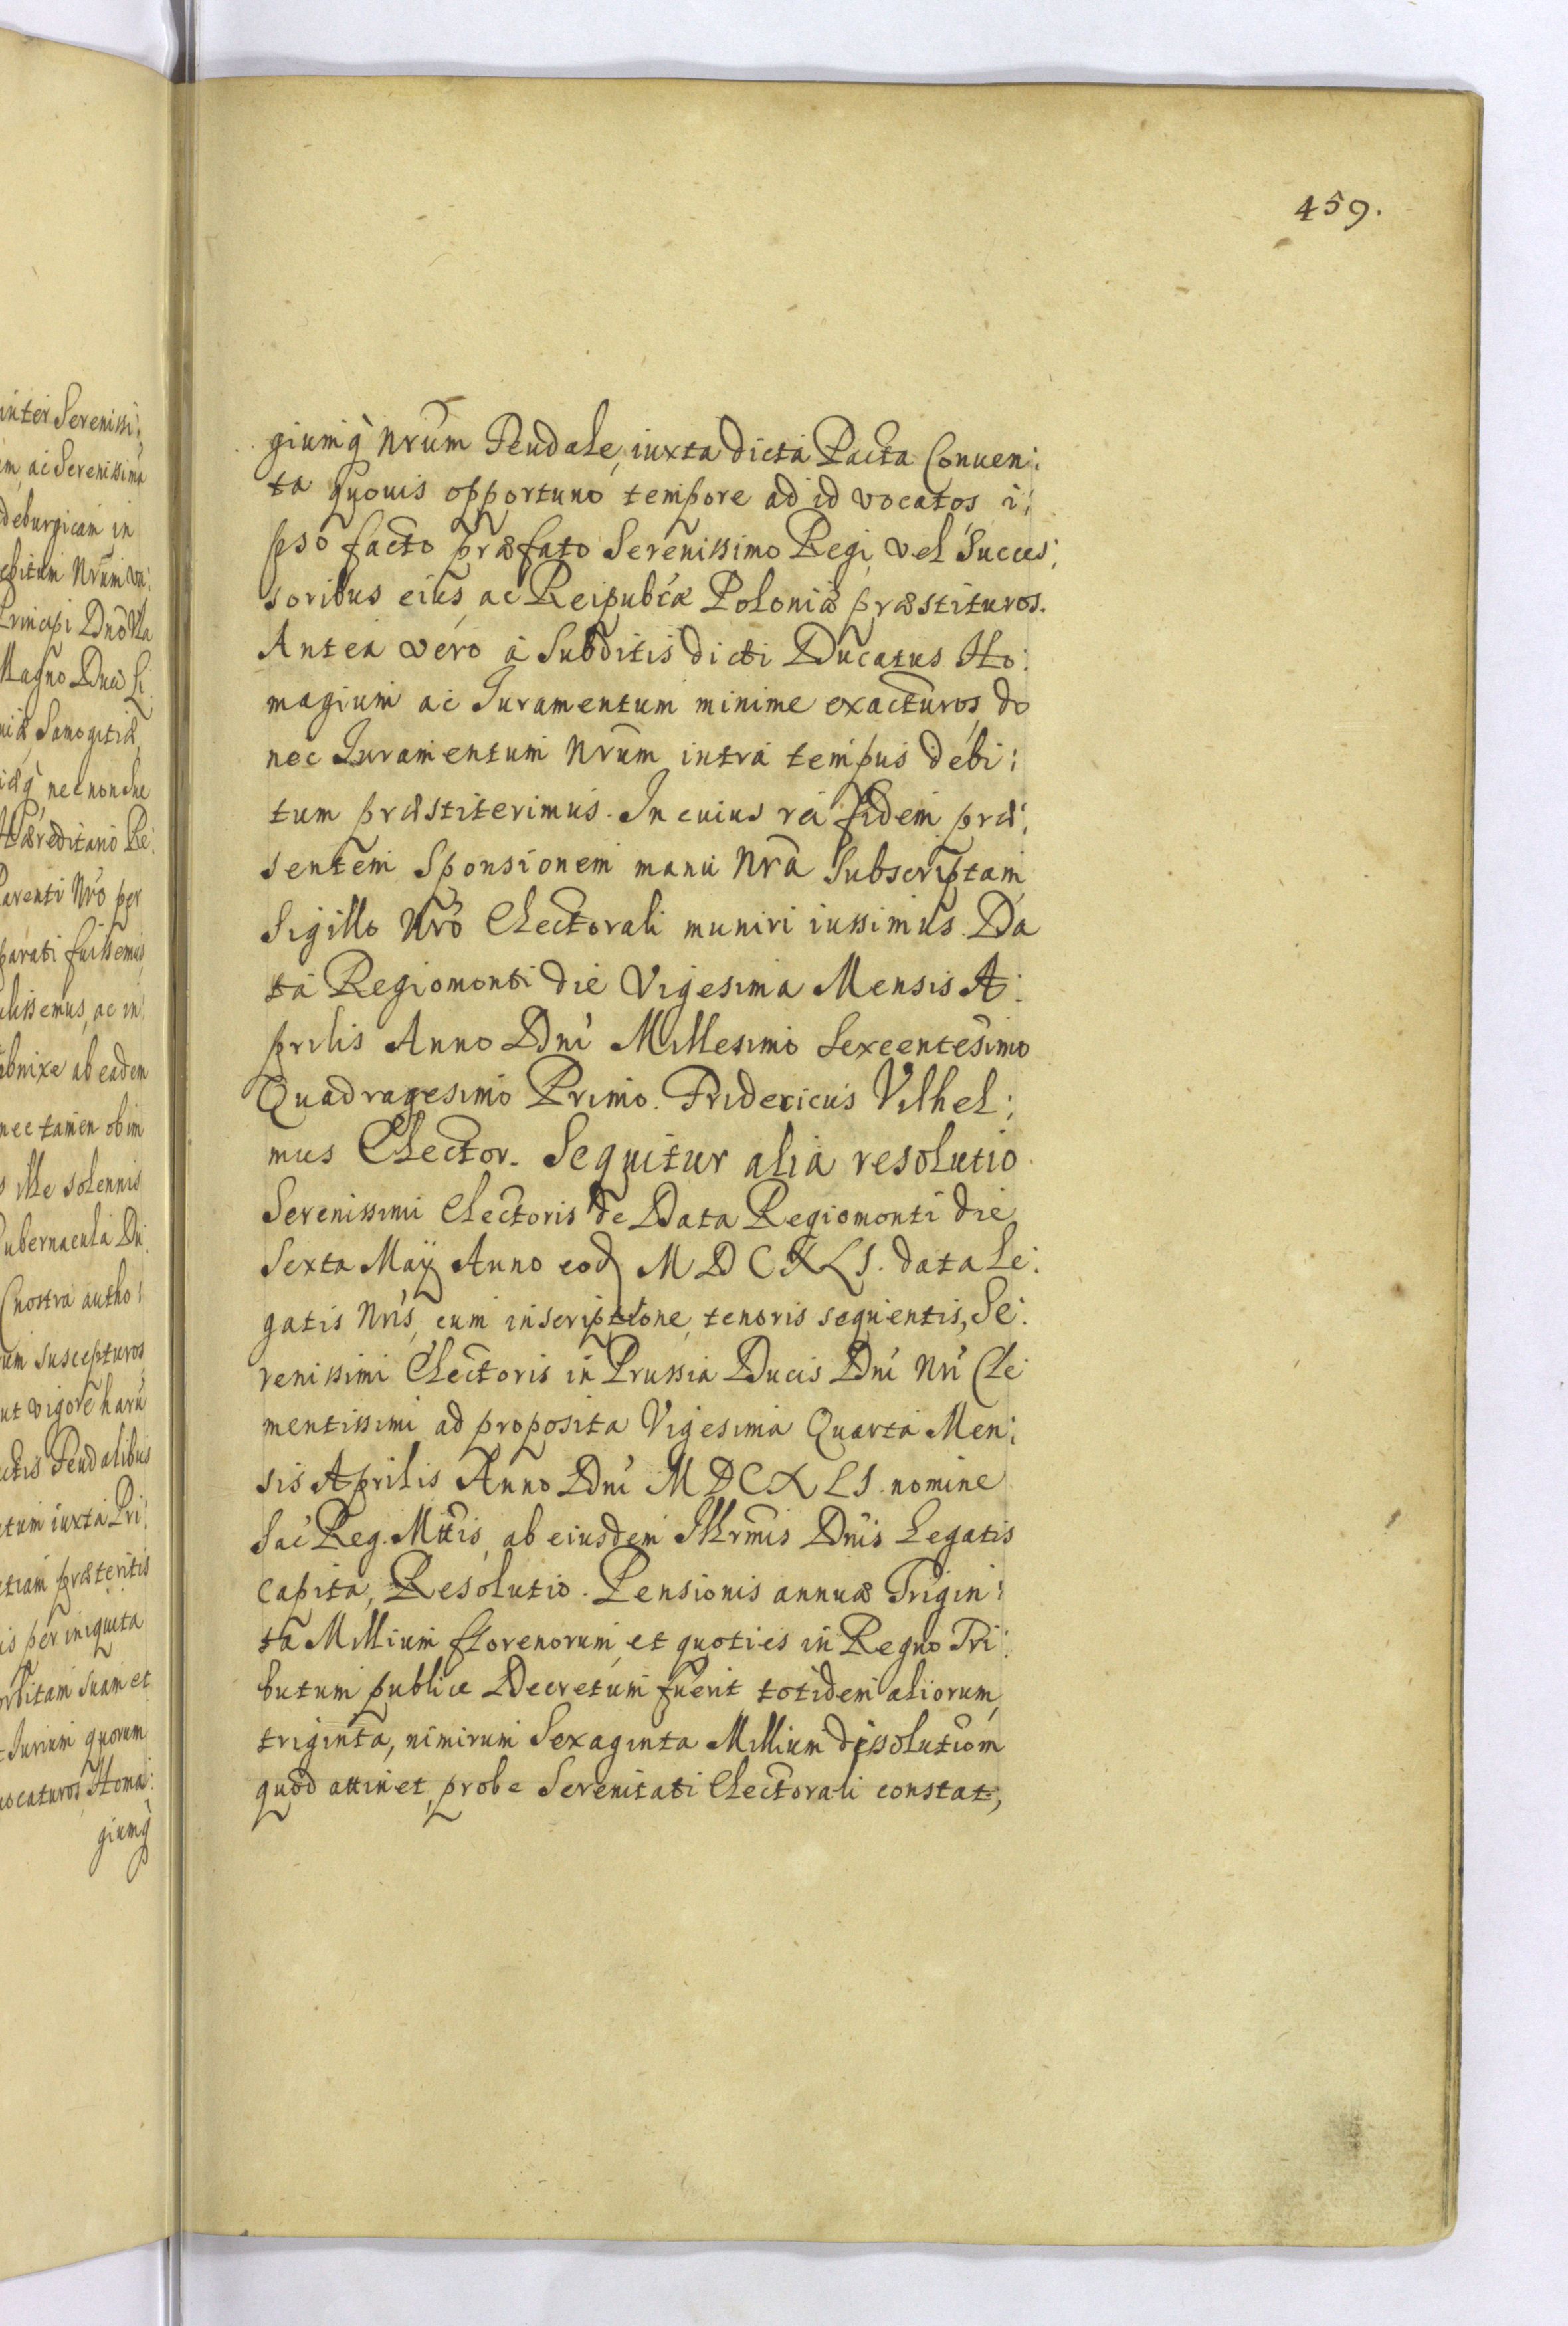 459.
giumq̀ Nrũm Feudale, iuxta dicta Pacta Conuen:
ta quouis opportuno tempore ad id vocatos i:
pso facto præfato Serenissimo Regi, vel Succes:
soribus eius ac Reipubćæ Poloniæ præstituros.
Antea vero a Subditis dicti Ducatus Ho:
magium ac Iuramentum minime exacturos, do
nec Iuramentum Nrũm intra tempus debi:
tum præstiterimus. In cuius rei fidem præ:
sentem Sponsionem manu Nrã Subscriptam
Sigillo Nrõ Electorali muniri iussimus. Da
ta Regiomonti die Vigesima Mensis A:
prilis Anno Dni Millesimo Sexcentesimo
Quadragesimo Primo. Fridericus Vilhel:
mus Elector. Sequitur alia resolutio
Serenissimi Electoris de Data Regiomonti die
Sexta Maÿ Anno eod MDCXLI. data Le:
gatis Nris, cum inscriptione, tenoris sequentis, Se:
renissimi Electoris in Prussia Ducis Dni Nri Cle
mentissimi ad proposita Vigesima Quarta Men:
sis Aprilis Anno Dni MDCXLI. nomine
Sac Reg. Mttis, ab eiusdem Illrmis Dnis Legatis
capita, Resolutio. Pensionis annuæ Trigin:
ta Millium florenorum, et quoties in Regno Tri:
butum publice Decretum fuerit totidem aliorum,
triginta, nimirum Sexaginta Millium dissolutiom
quod attinet, probe Serenitati Electorali constat,
inter Serenissi:
m, ac Serenissima
deburgicam in
Nrũm
Principi Dnõ Vla
Magno Duci Li
niæ Samogitiæ,
nec non
Hæreditario Re:
Parenti Nrõ per
parati fuissemus
uissemus, ac in
obnixe ab eadem
nec tamen ob im
ille solennis
Gubernacula Du
(nostra autho:
um suscepturos,
ut vigore harũ
ctis Feudalibus
tum iuxta Pri:
etiam præteritis
is per iniquita
orbitam suam et
Iurium quorum
vocaturos, Homa:
giumq̀